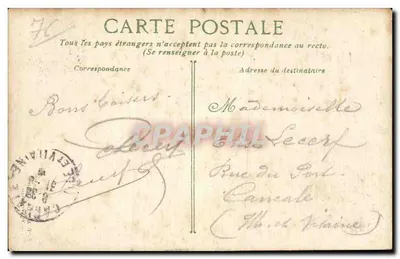 76
CARTE POSTALE
Tous les pays étrangers n'acceptent pas la correspondance au recto.
(Se renseigner à la poste)
Correspondance
Adresse du destinataire
Bons baisers
Mademoiselle
Elise Lecerf
Rue du Port
Cancale
(Ille et Vilaine)
ET VILAINE